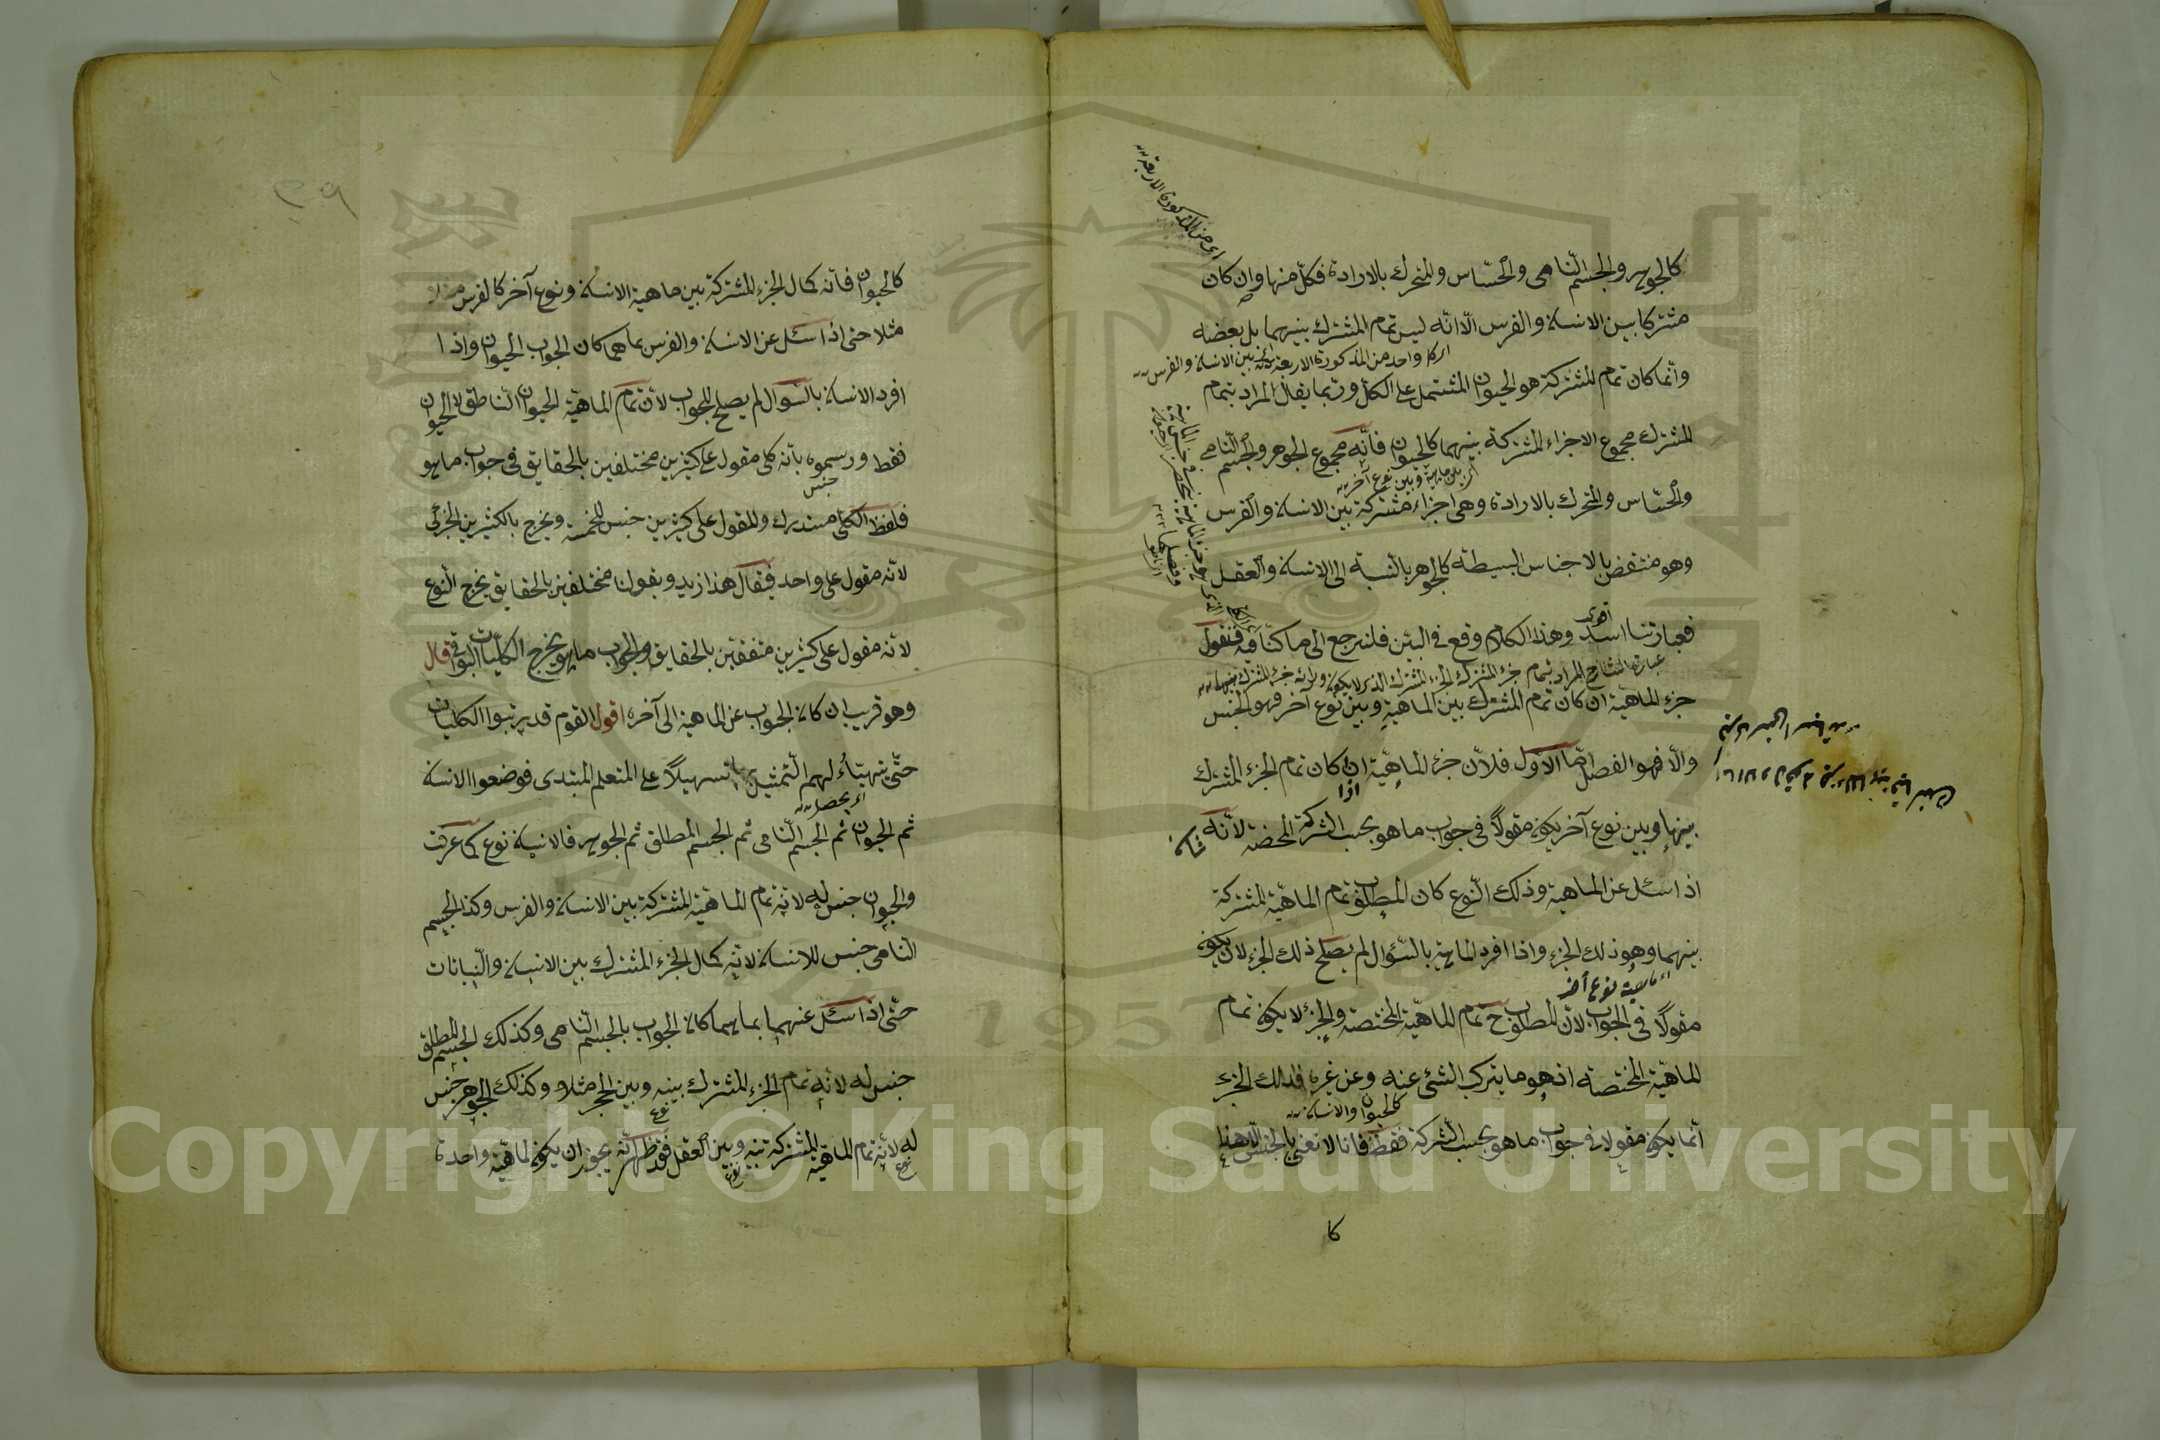 كالجوهر والجسم النامى والحساس والمتحرك بالارادة فكل منها وان كان
مشتركا بين الانسان والفرس الا انه ليس تمام المشترك بينهما بل بعضه
وانما كان تمام المشترك هو الحيوان المشتمل على الكل وربما يقال المراد بتمام
المشترك مجموع الاجزاء المشتركة بينهما كالحيوان فانه مجموع الجوهر والجسم النامى
والحساس والمتحرك بالارادة وهى اجزاء مشتركة بين الانسان والفرس
وهو منتقض بالاجناس البسيطة كالجوهر بالنسبة الى الانسان والعقل
فعبارتنا اسد وهذا الكلام وقع فى البين فلنرجع الى ما كنا فيه فنقول
جزء الماهية ان كان تمام المشترك بين الماهية وبين نوع آخر فهو الجنس
والا فهو الفصل اما الاول فلان جزء الماهية ان كان تمام الجزء المشترك
بينها وبين نوع آخر يكون مقولا فى جواب ما هو بحسب الشركة المحضة لانه
اذا سئل عن الماهية وذلك النوع كان المطلوب تمام الماهية المشتركة
بينهما وهو ذلك الجزء واذا افرد الماهية بالسؤال لم يصلح ذلك الجزء لان يكون
مقولا فى الجواب لان المطلوب ح تمام الماهية المختصة والجزء لا يكون تمام
الماهية المختصة اذ هو ما يتركب الشئ عنه وعن غيره فذلك الجزء
انما يكون مقولا فى جواب ما هو بحسب الشركة فقط فانا لا نعنى بالجنس الا هذا
كا
اى من المذكورة الاربعة
اى كل واحد من المذكورة الاربعة بين الانسان والفرس
اى بين ماهية وبين نوع آخر
اقوى
اذا
اى ماهية نوع آخر
كالحيوان والانسان
٢٩
كالحيوان فانه كمال الجزء المشتركة بين ماهية الانسان ونوع آخر كالفرس
مثلا حتى اذا سئل عن الانسان والفرس بما هما كان الجواب الحيوان واذا
افرد الانسان بالسؤال لم يصلح للجواب لان تمام الماهية الحيوان الناطق لا الحيوان
فقط ورسموه بانه كلى مقول على كثيرين مختلفين بالحقايق فى جواب ما هو
جنس
فلفظ الكلى مستدرك والمقول على كثيرين جنس للخمسة ويخرج بالكثيرين الجزئى
لانه مقول على واحد فيقال هذا زيد وبقولنا مختلفين بالحقايق يخرج النوع
لانه مقول على كثيرين متفقين بالحقايق وبجواب ما هو يخرج الكليات البواقى قال
وهو قريب ان كان الجواب عن الماهية الى آخره اقول القوم قد رتبوا الكليات
حتى يتهيأ لهم التمثيل بها تسهيلا على المتعلم المبتدى فوضعوا الانسان
اى يحصل
ثم الحيوان ثم الجسم النامى ثم الجسم المطلق ثم الجوهر فالانسان نوع كما عرفت
والحيوان جنس له لانه تمام الماهية المشتركة بين الانسان والفرس وكذا الجسم
النامى جنس للانسان لانه كمال الجزء المشترك بين الانسان والنباتات
حتى اذا سئل عنهما بما هما كان الجواب بالجسم النامى وكذلك الجسم المطلق
جنس له لانه تمام الجزء المشترك بينه وبين الحجر مثلا وكذلك الجوهر جنس
له لانه تمام الماهية المشتركة بينه وبين العقل فقد ظهر انه يجوز ان يكون لماهية واحدة
نوع
نوع
نوع
1957
Copyright © King Saud University